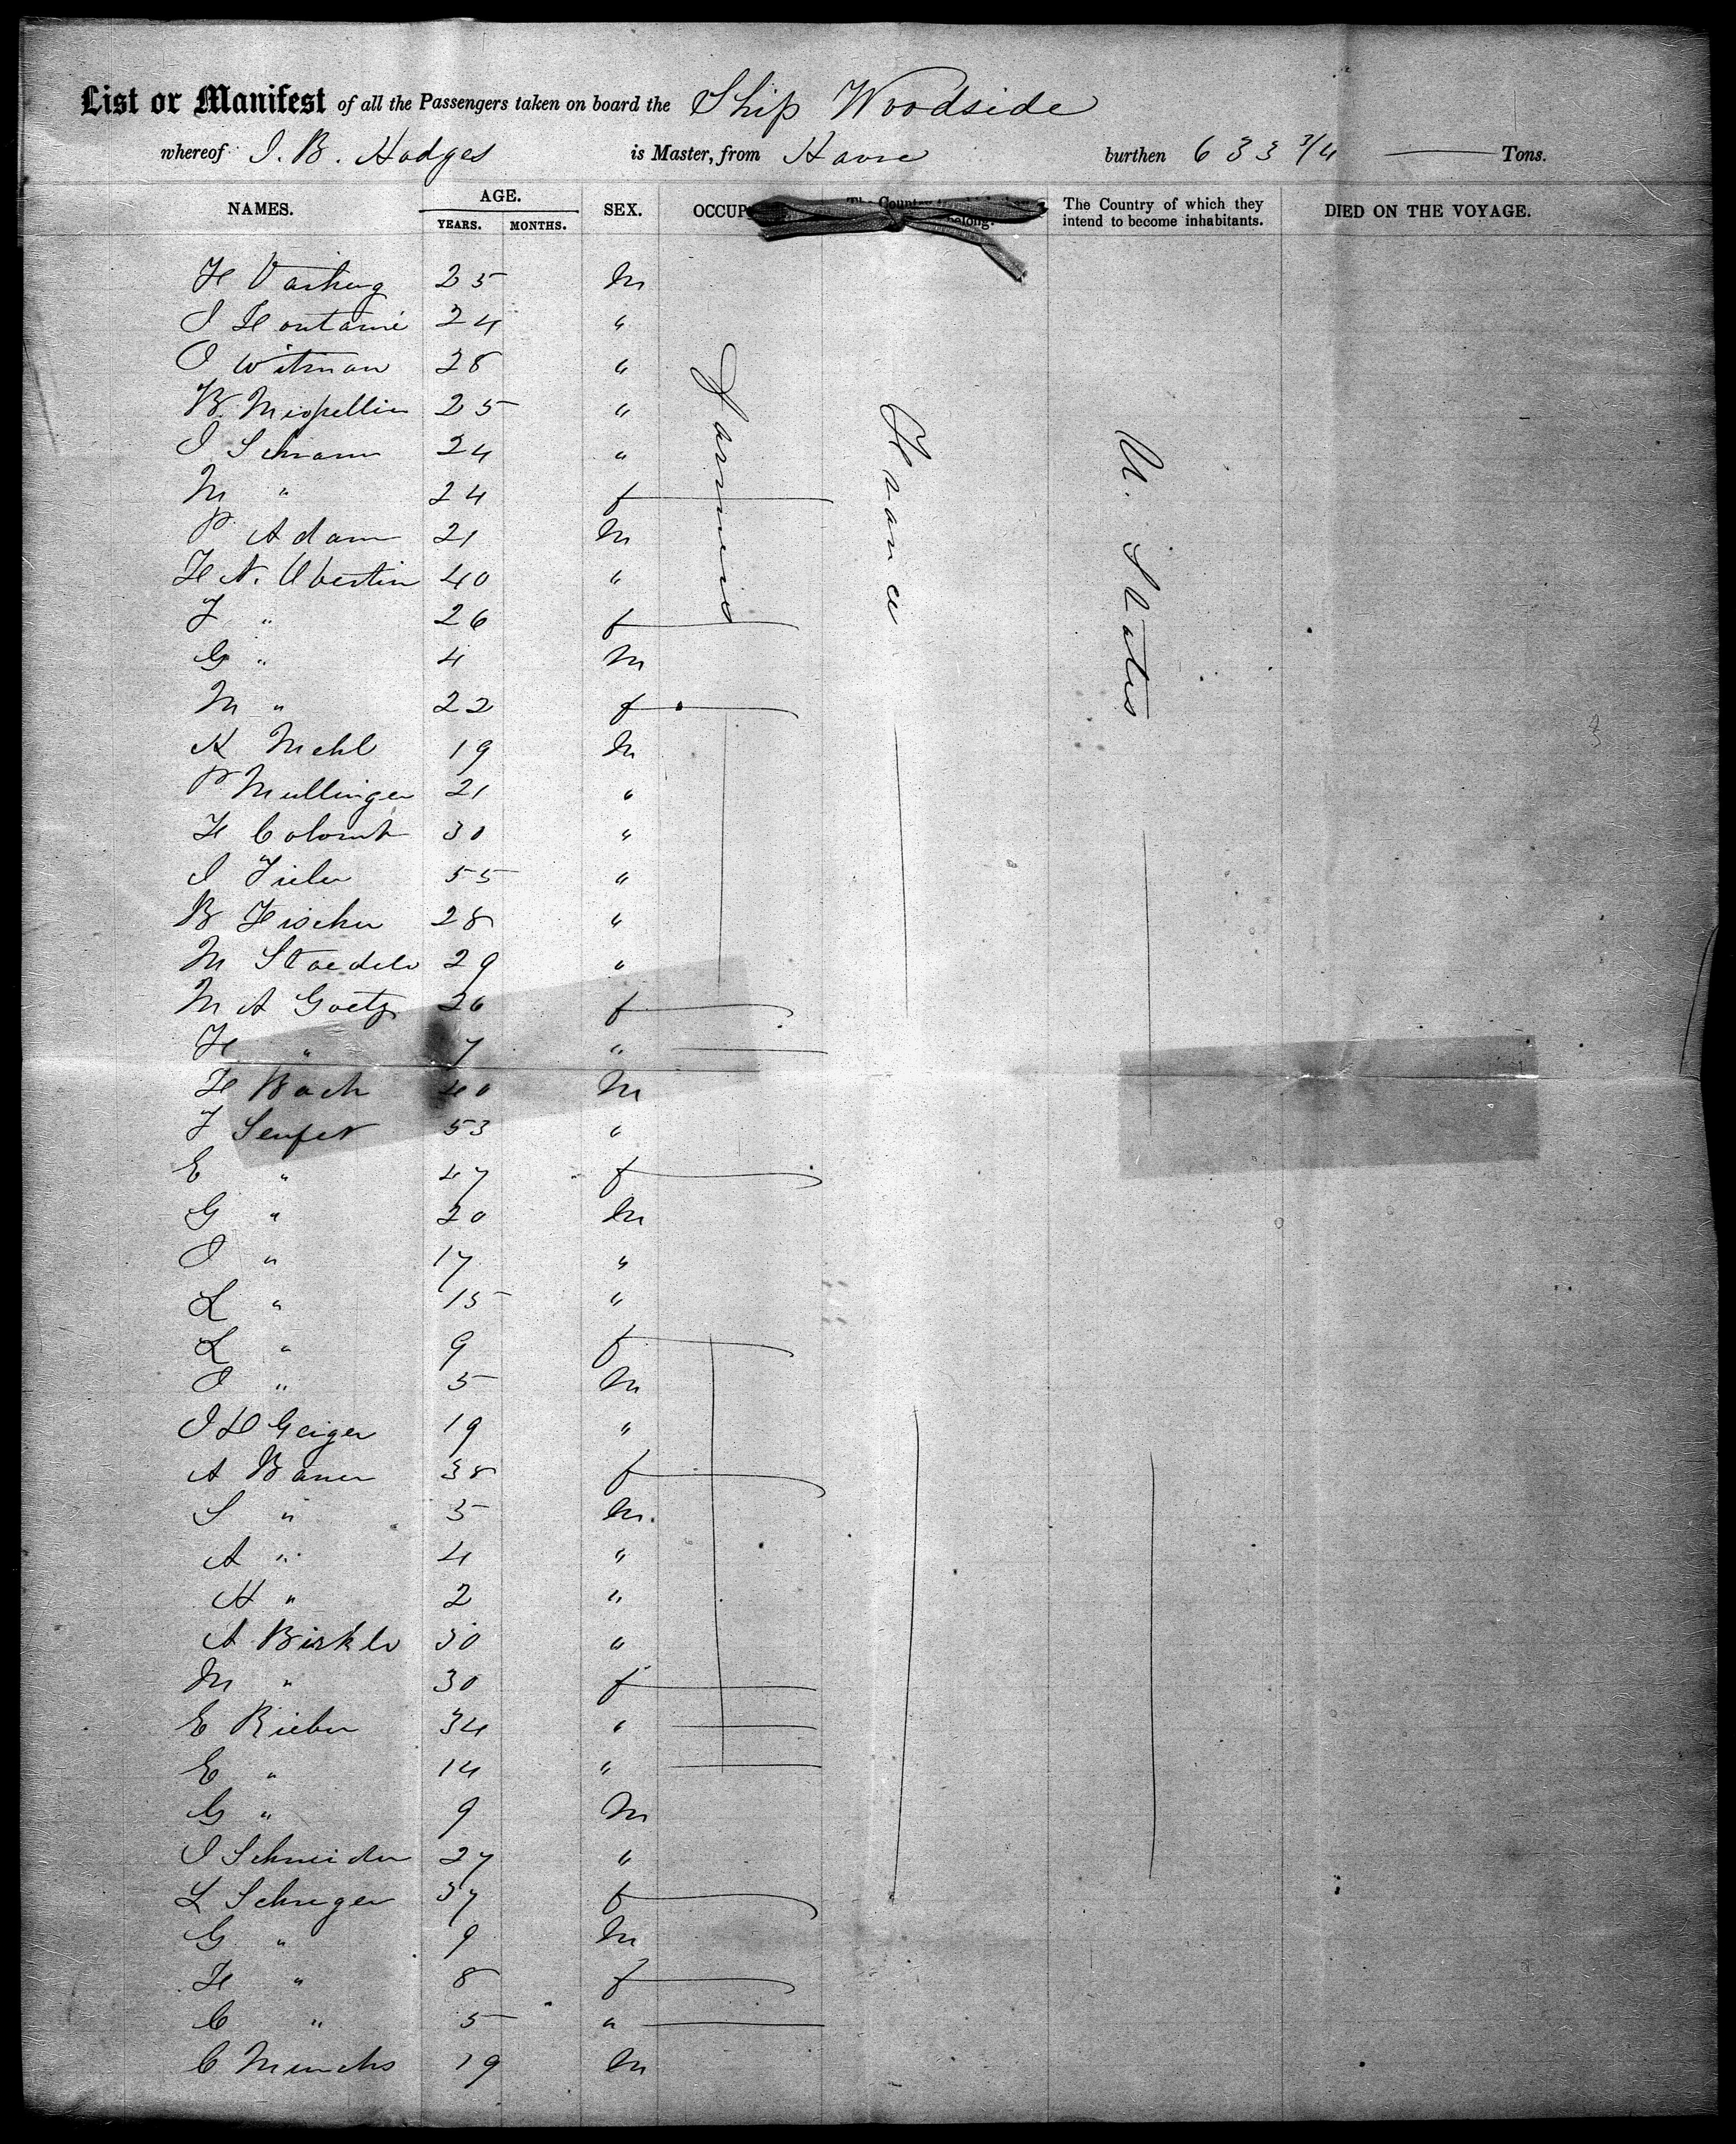 List or Manifest of all the Passengers taken on board the Ship Woodside
whereof J. B. Hodges is Master, from Havre burthen 633 3/4 — Tons.
NAMES. AGE. SEX. OCCUP The Country to belong. The Country of which they intend to become inhabitants. DIED ON THE VOYAGE.
YEARS. MONTHS.
Farmers France U. States
F 25 M
J Fontaine 24 "
J Witman 28 "
B. 25 "
J Schramm 24 "
M " 24 f
P Adam 21 M
F N. Obertin 40 "
T " 26 f
G " 4 M
M " 22 f
K Mehl 19 M
P Mullinger 21 "
F Colomb 30 "
J 55 "
B Fischer 28 "
M Staedele 29 "
M A Goetz 26 f
F " 7 "
F Bach 40 M
T Seufert 53 "
E " 47 f
G " 20 M
J " 17 "
L " 15 "
L " 9 f
J " 5 M
J L Geiger 19 "
A Bauer 38 f
S " 5 M.
A " 4 "
H " 2 "
A Birkle 30 "
M " 30 f
E Rieber 34 "
E " 14 "
G " 9 M
J Schneider 27 "
L 37 f
G " 9 M
F " 8 f
C " 5 "
C 19 M